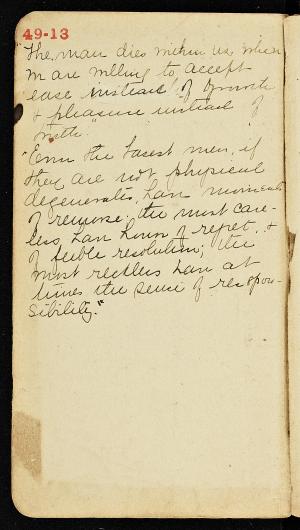 49-13
"The man dies within us when
we are willing to accept
ease instead of growth
& pleasure instead of
truth.
"Even the basest men, if
they are not physical
degenerates, have moments
of remorse; the most care-
less have hours of regret, &
of feeble resolution; the
most reckless have at
times the sense of respon-
sibility."